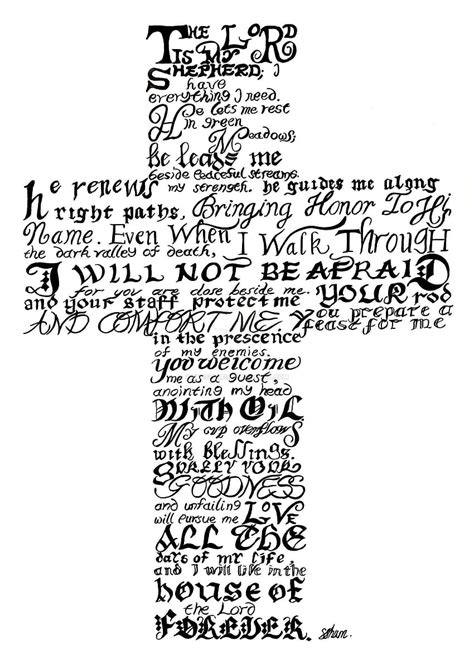 THE LORD
IS MY
SHEPHERD; I
have
everything I need.
He lets me rest
in green
Meadows;
he leads me
beside peaceful streams.
he renews my strength. he guides me along
right paths, Bringing Honor To His
Name. Even When I Walk Through
the dark valley of death,
I WILL NOT BE AFRAID
for you are close beside me. YOUR rod
and your staff protect me
AND COMFORT ME. You prepare a
feast for me
in the prescence
of my enemies.
you welcome
me as a guest,
anointing my head
With Oil.
My cup overflows
with blessings.
SURELY YOUR
GOODNESS
and unfailing LOVE
will pursue me
ALL THE
days of my life,
and I will live in the
house of
the Lord
FOREVER.